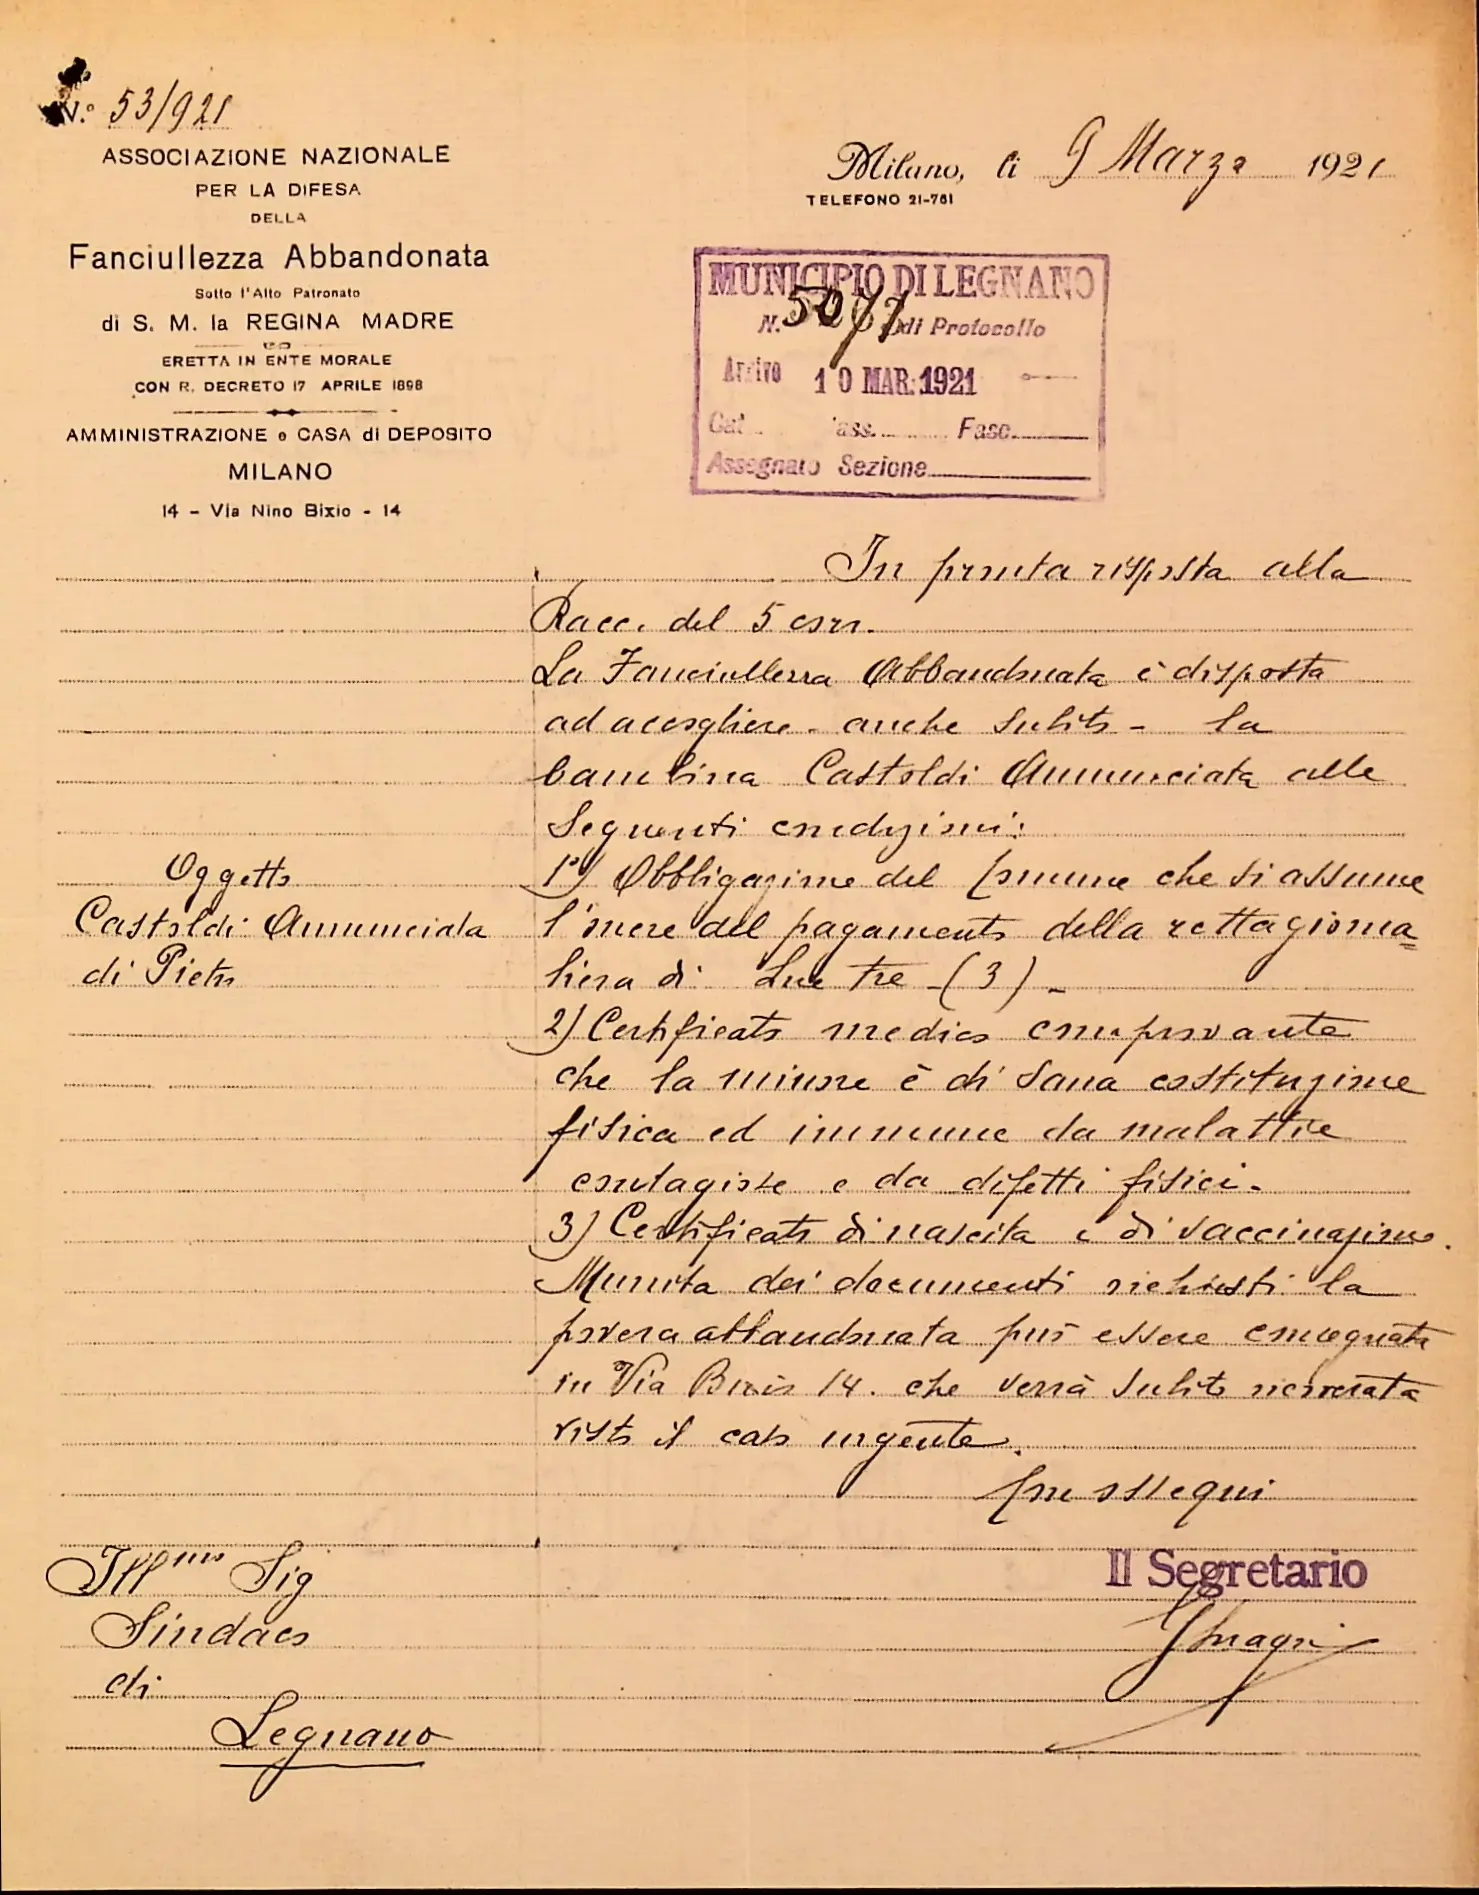 N.° 53/921
ASSOCIAZIONE NAZIONALE
PER LA DIFESA
DELLA
Fanciullezza Abbandonata
Sotto l'Alto Patronato
di S. M. la REGINA MADRE
ERETTA IN ENTE MORALE
CON R. DECRETO 17 APRILE 1898
AMMINISTRAZIONE e CASA di DEPOSITO
MILANO
14 - Via Nino Bixio - 14
Milano, li 9 Marzo 1921
TELEFONO 21-761
MUNICIPIO DI LEGNANO
N. 5077 di Protocollo
Arrivo 10 MAR. 1921
Cat. ass. Fasc.
Assegnato Sezione
In pronta risposta alla
Racc. del 5 corr.
La Fanciullezza Abbandonata è disposta
ad accogliere - anche subito - la
bambina Castoldi Annunciata alle
seguenti condizioni:
1°) Obbligazione del Comune che si assume
l'onere del pagamento della retta giorna=
liera di Lire tre (3) -
2) Certificato medico comprovante
che la minore è di sana costituzione
fisica ed immune da malattie
contagiose e da difetti fisici -
3) Certificato di nascita e di vaccinazione.
Munita dei documenti richiesti la
povera abbandonata può essere consegnata
in Via Bixio 14. che verrà subito ricoverata
visto il caso urgente.
Con ossequi
Il Segretario
Oggetto
Castoldi Annunciata
di Pietro
Ill.mo Sig
Sindaco
di
Legnano